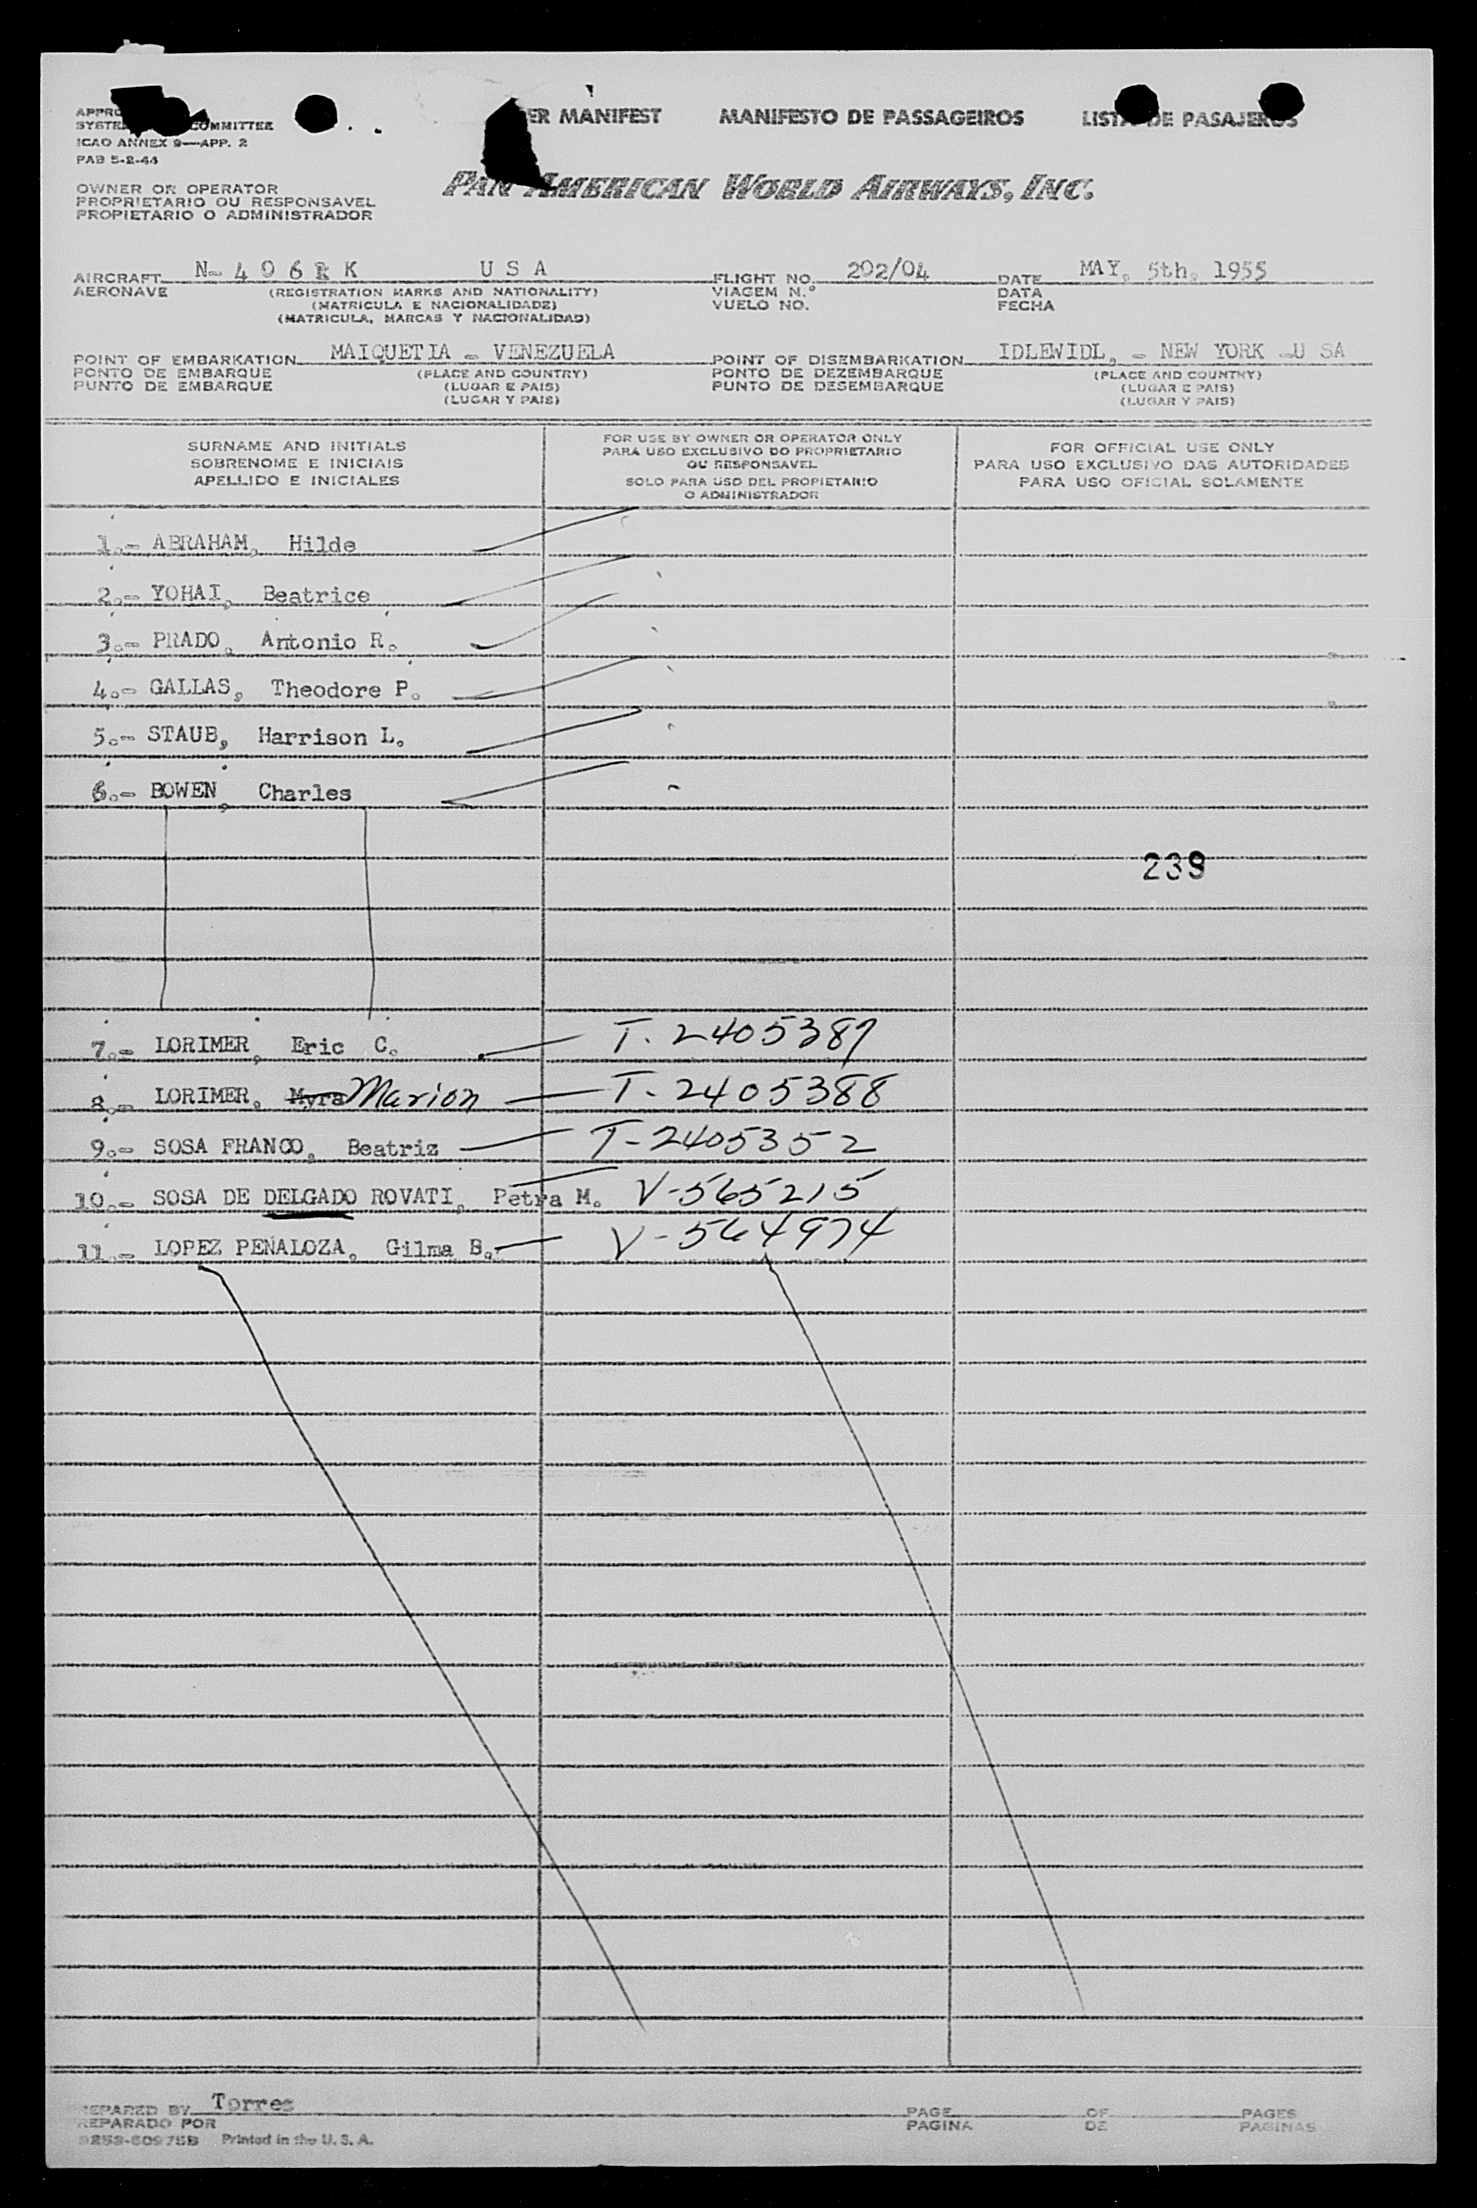 ER MANIFEST MANIFESTO DE PASSAGEIROS LISTA DE PASAJEROS
COMMITTEE
ICAO ANNEX 9—APP. 2
PAB 5-2-44
PAN AMERICAN WORLD AIRWAYS, INC.
OWNER OR OPERATOR
PROPRIETARIO OU RESPONSAVEL
PROPIETARIO O ADMINISTRADOR
AIRCRAFT N- 4 0 6 K U S A FLIGHT NO. 202/04 DATE MAY, 5th, 1955
AERONAVE (REGISTRATION MARKS AND NATIONALITY) VIAGEM N.º DATA
(MATRICULA E NACIONALIDADE) VUELO NO. FECHA
(MATRICULA, MARCAS Y NACIONALIDAD)
POINT OF EMBARKATION MAIQUETIA - VENEZUELA POINT OF DISEMBARKATION IDLEWIDL, - NEW YORK -U SA
PONTO DE EMBARQUE (PLACE AND COUNTRY) PONTO DE DEZEMBARQUE (PLACE AND COUNTRY)
PUNTO DE EMBARQUE (LUGAR E PAIS) PUNTO DE DESEMBARQUE (LUGAR E PAIS)
(LUGAR Y PAIS) (LUGAR Y PAIS)
SURNAME AND INITIALS
SOBRENOME E INICIAIS
APELLIDO E INICIALES
FOR USE BY OWNER OR OPERATOR ONLY
PARA USO EXCLUSIVO DO PROPRIETARIO
OU RESPONSAVEL
SOLO PARA USO DEL PROPIETARIO
O ADMINISTRADOR
FOR OFFICIAL USE ONLY
PARA USO EXCLUSIVO DAS AUTORIDADES
PARA USO OFICIAL SOLAMENTE
1.- ABRAHAM, Hilde
2.- YOHAI, Beatrice
3.- PRADO, Antonio R.
4.- GALLAS, Theodore P.
5.- STAUB, Harrison L.
6.- BOWEN, Charles
239
7.- LORIMER, Eric C. T. 2405387
8.- LORIMER, Myra Marion T- 2405388
9.- SOSA FRANCO, Beatriz T-2405352
10.- SOSA DE DELGADO ROVATI, Petra M. V-565215
11.- LOPEZ PEÑALOZA, Gilma B. V-564974
PREPARED BY Torres PAGE OF PAGES
REPARADO POR PAGINA DE PAGINAS
Printed in the U. S. A.